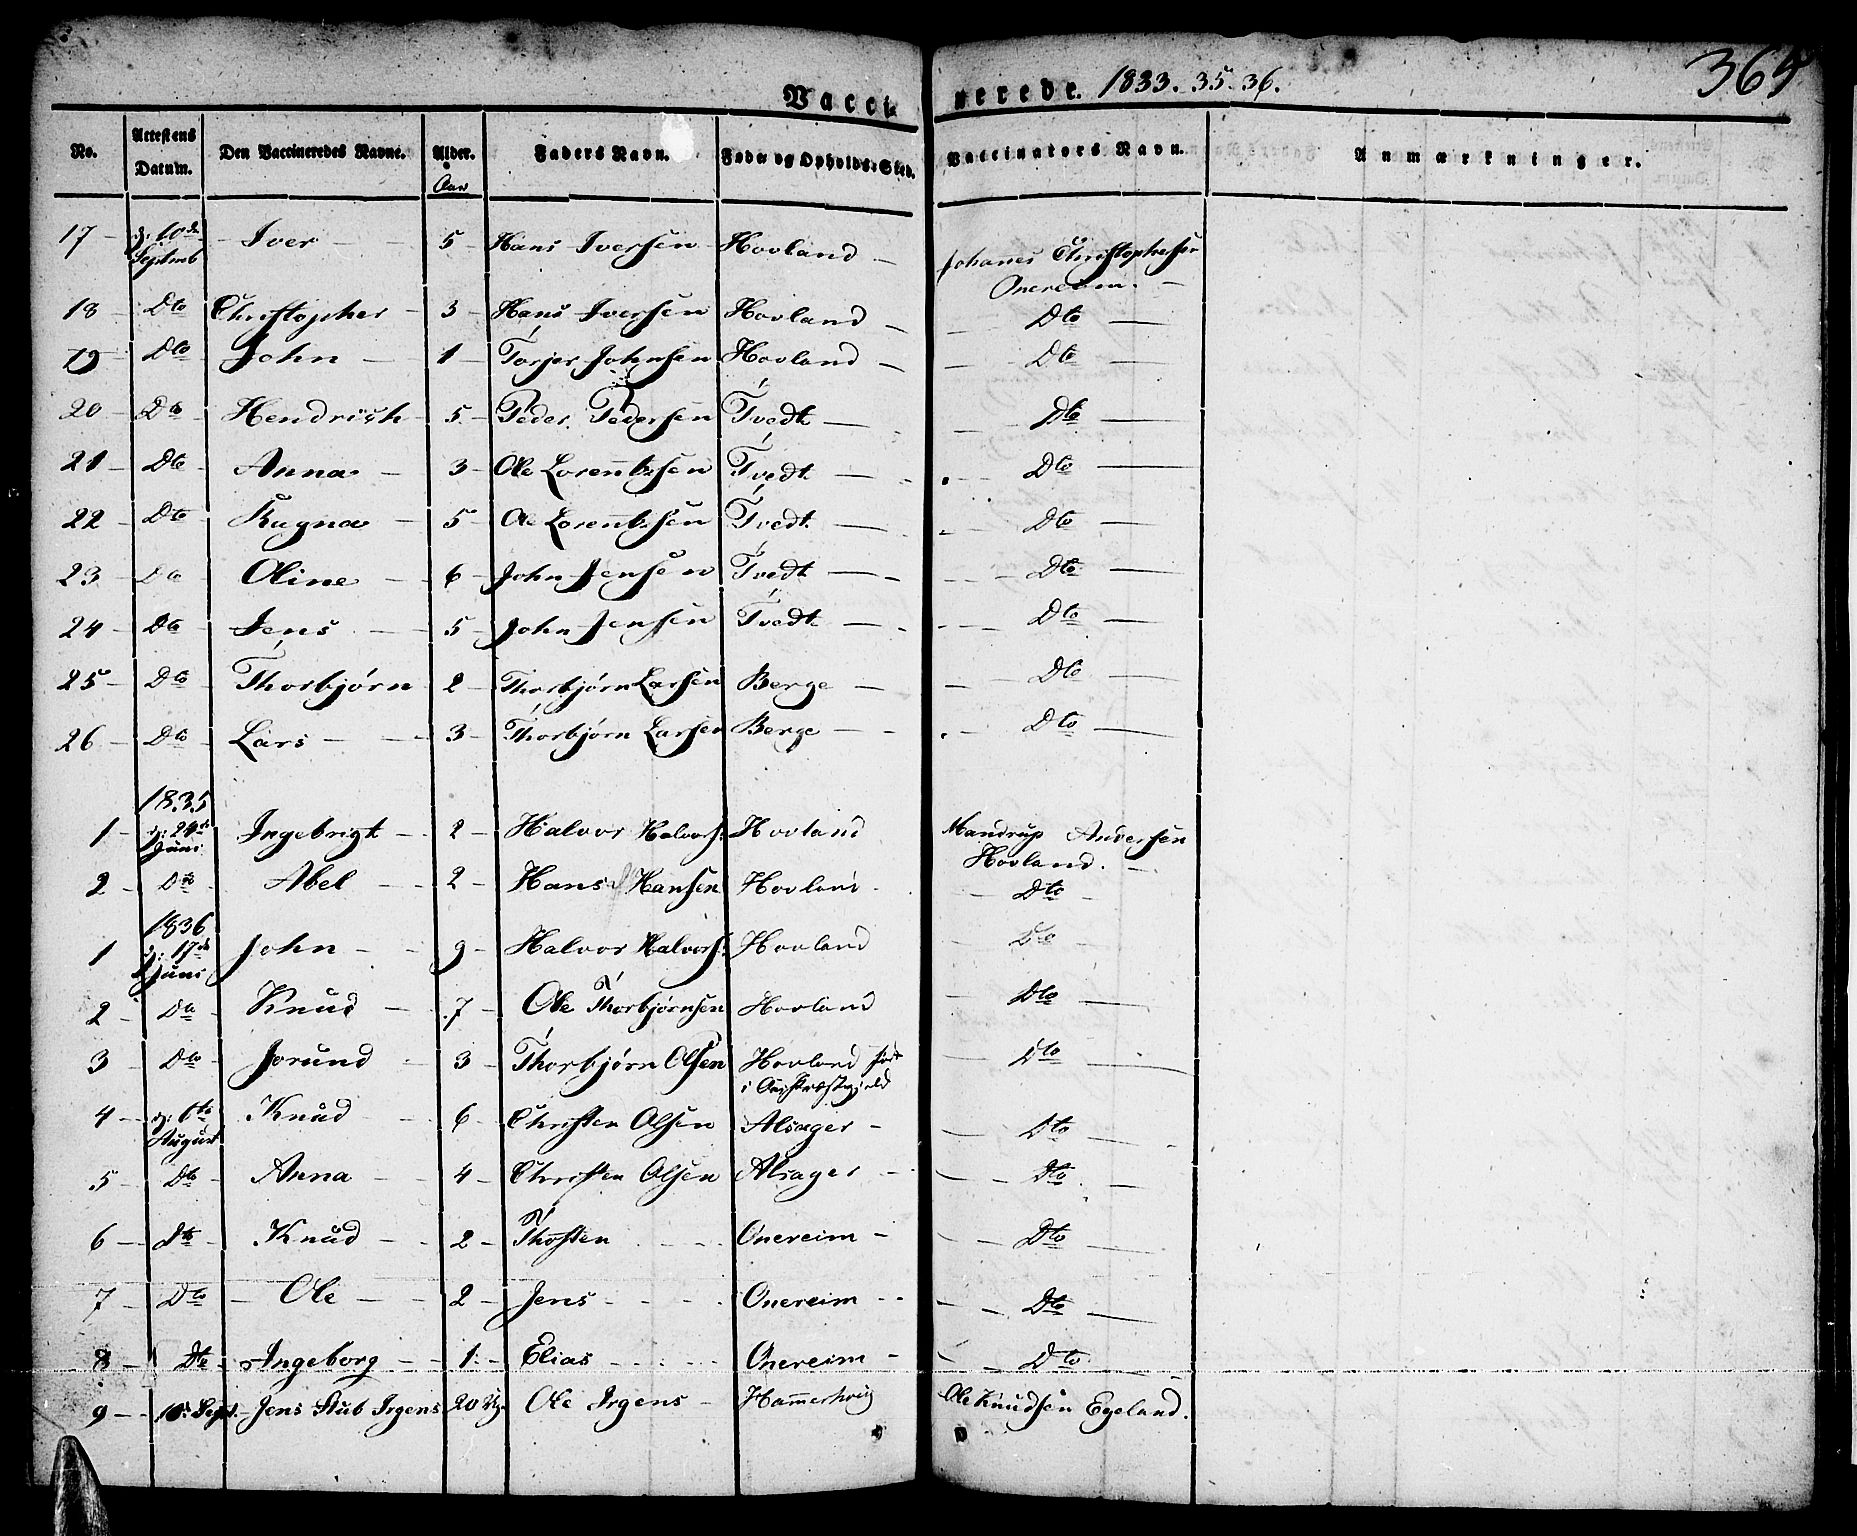 Vacci nerede. 1833. 35. 36. 365
No. Attestens Datum. Den Vaccineredes Navne. Alder. Faders Navn. Føde og Opholds-Sted. Vaccinators Navn. Anmærkninger.
Aar
17 – d: 10de Septmb – Iver – 5 – Hans Iversen – Hovland – Johanes Christophersen
Onereim. –
18 – Dto Christopher – 3 – Hans Iversen Hovland – Dto –
19 – Dto John – 1 – Torjer Johnsen Hovland – Dto –
20 – Dto Hendrich – 5 – Peder Pedersen Tvedt – Dto –
21 – Dto Anna – 3 – Ole Lorentzsen Tvedt – Dto –
22 – Dto Ragna – 5 – Ole Lorentzsen Tvedt – Dto –
23 – Dto Oline – 6 – John Jensen Tvedt – Dto –
24 – Dto Jens – 5 – John Jensen Tvedt – Dto –
25 – Dto Thorbjørn 2 – Thorbjørn Larsen Berge – Dto –
26 – Dto Lars – 3 – Thorbjørn Larsen Berge – Dto –
1835
1 – d: 24de Juni Ingebrigt – 2 – Halvor Halvors: Hovland Mandrup Andersen
Hovland. –
2 – Dto Abel – 2 – Hans Hansen Hovland – Dto –
1836
1 d: 17de Juni John – 9 – Halvor Halvors: Hovland – Dto –
2 – Dto Knud – 7 – Ole Thorbjørnsen Hovland – Dto –
3 – Dto Jorund 3 – Thorbjørn Olsen Hovland født – Dto –
i Præstegjeld
4 – d: 6te August Knud – 6 – Christen Olsen Alsager – Dto –
5 – Dto Anna – 4 – Christen Olsen Alsager – Dto –
6 – Dto Knud – 2 – Thosten – Onereim – Dto –
7 – Dto – Ole – 2 – Jens – Onereim – Dto –
8 – Dto – Ingeborg – 1 – Elias – Onereim – Dto –
9 – Sept. – Jens Stub Irgens 20 Ole Irgens – Ole Knudsen Egeland.